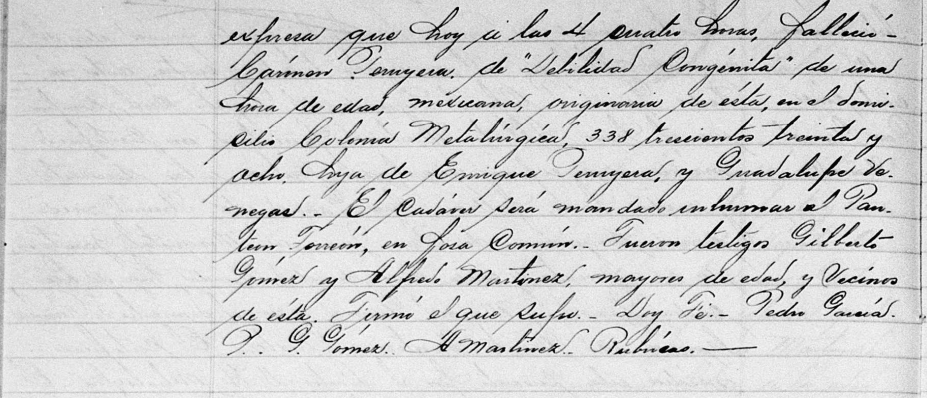 expresa que hoy a las 4 cuatro horas, falleció -
Cármen Penyera. de "Debilidad Congénita" de una
hora de edad, mexicana, originaria de ésta, en el domi-
silio Colonia Metalúrgica, 338 trescientos treinta y
ocho. hija de Enrique Penyera, y Guadalupe Ve-
negas. - El cadáver será mandado inhumar al Pan-
teon Torreón, en fosa Común. - Fueron testigos Gilberto
Gómez y Alfredo Martínez, mayores de edad, y Vecinos
de ésta. Firmó el que supo. - Doy Fé. - Pedro García.
P. G. Gómez. A Martínez. Rúbricas. -